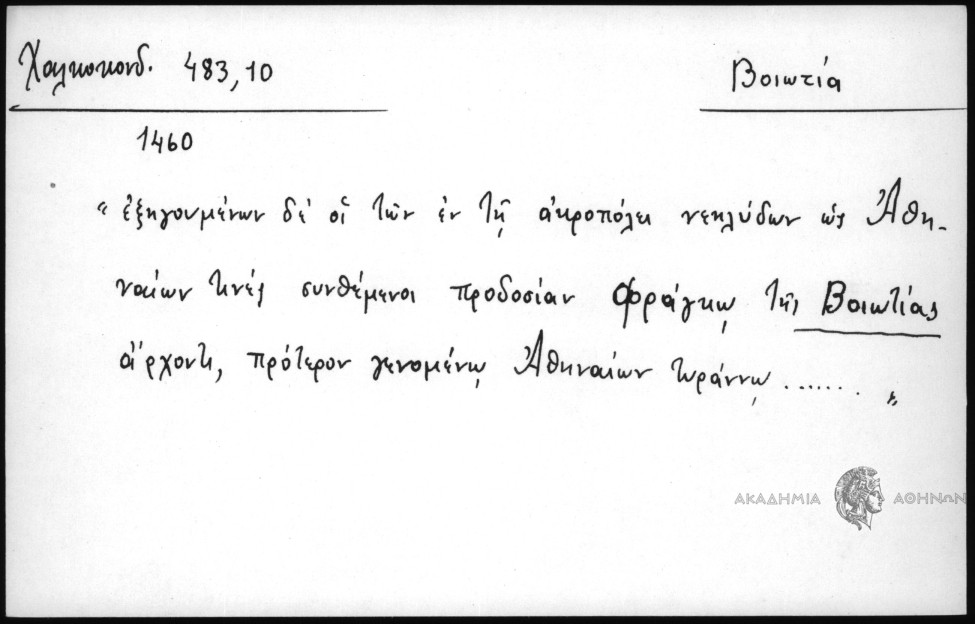 Χαλκοκονδ. 483,10
Βοιωτία
1460
" ἐξηγουμένων δέ οἱ τῶν ἐν τῇ ἀκροπόλει νεηλύδων ὡς Ἀθη-
ναίων τινές συνθέμενοι προδοσίαν Φράγκῳ τῆς Βοιωτίας
ἄρχοντι, πρότερον γενομένῳ Ἀθηναίων τυράννῳ ....... "
ΑΚΑΔΗΜΙΑ ΑΘΗΝΩΝ